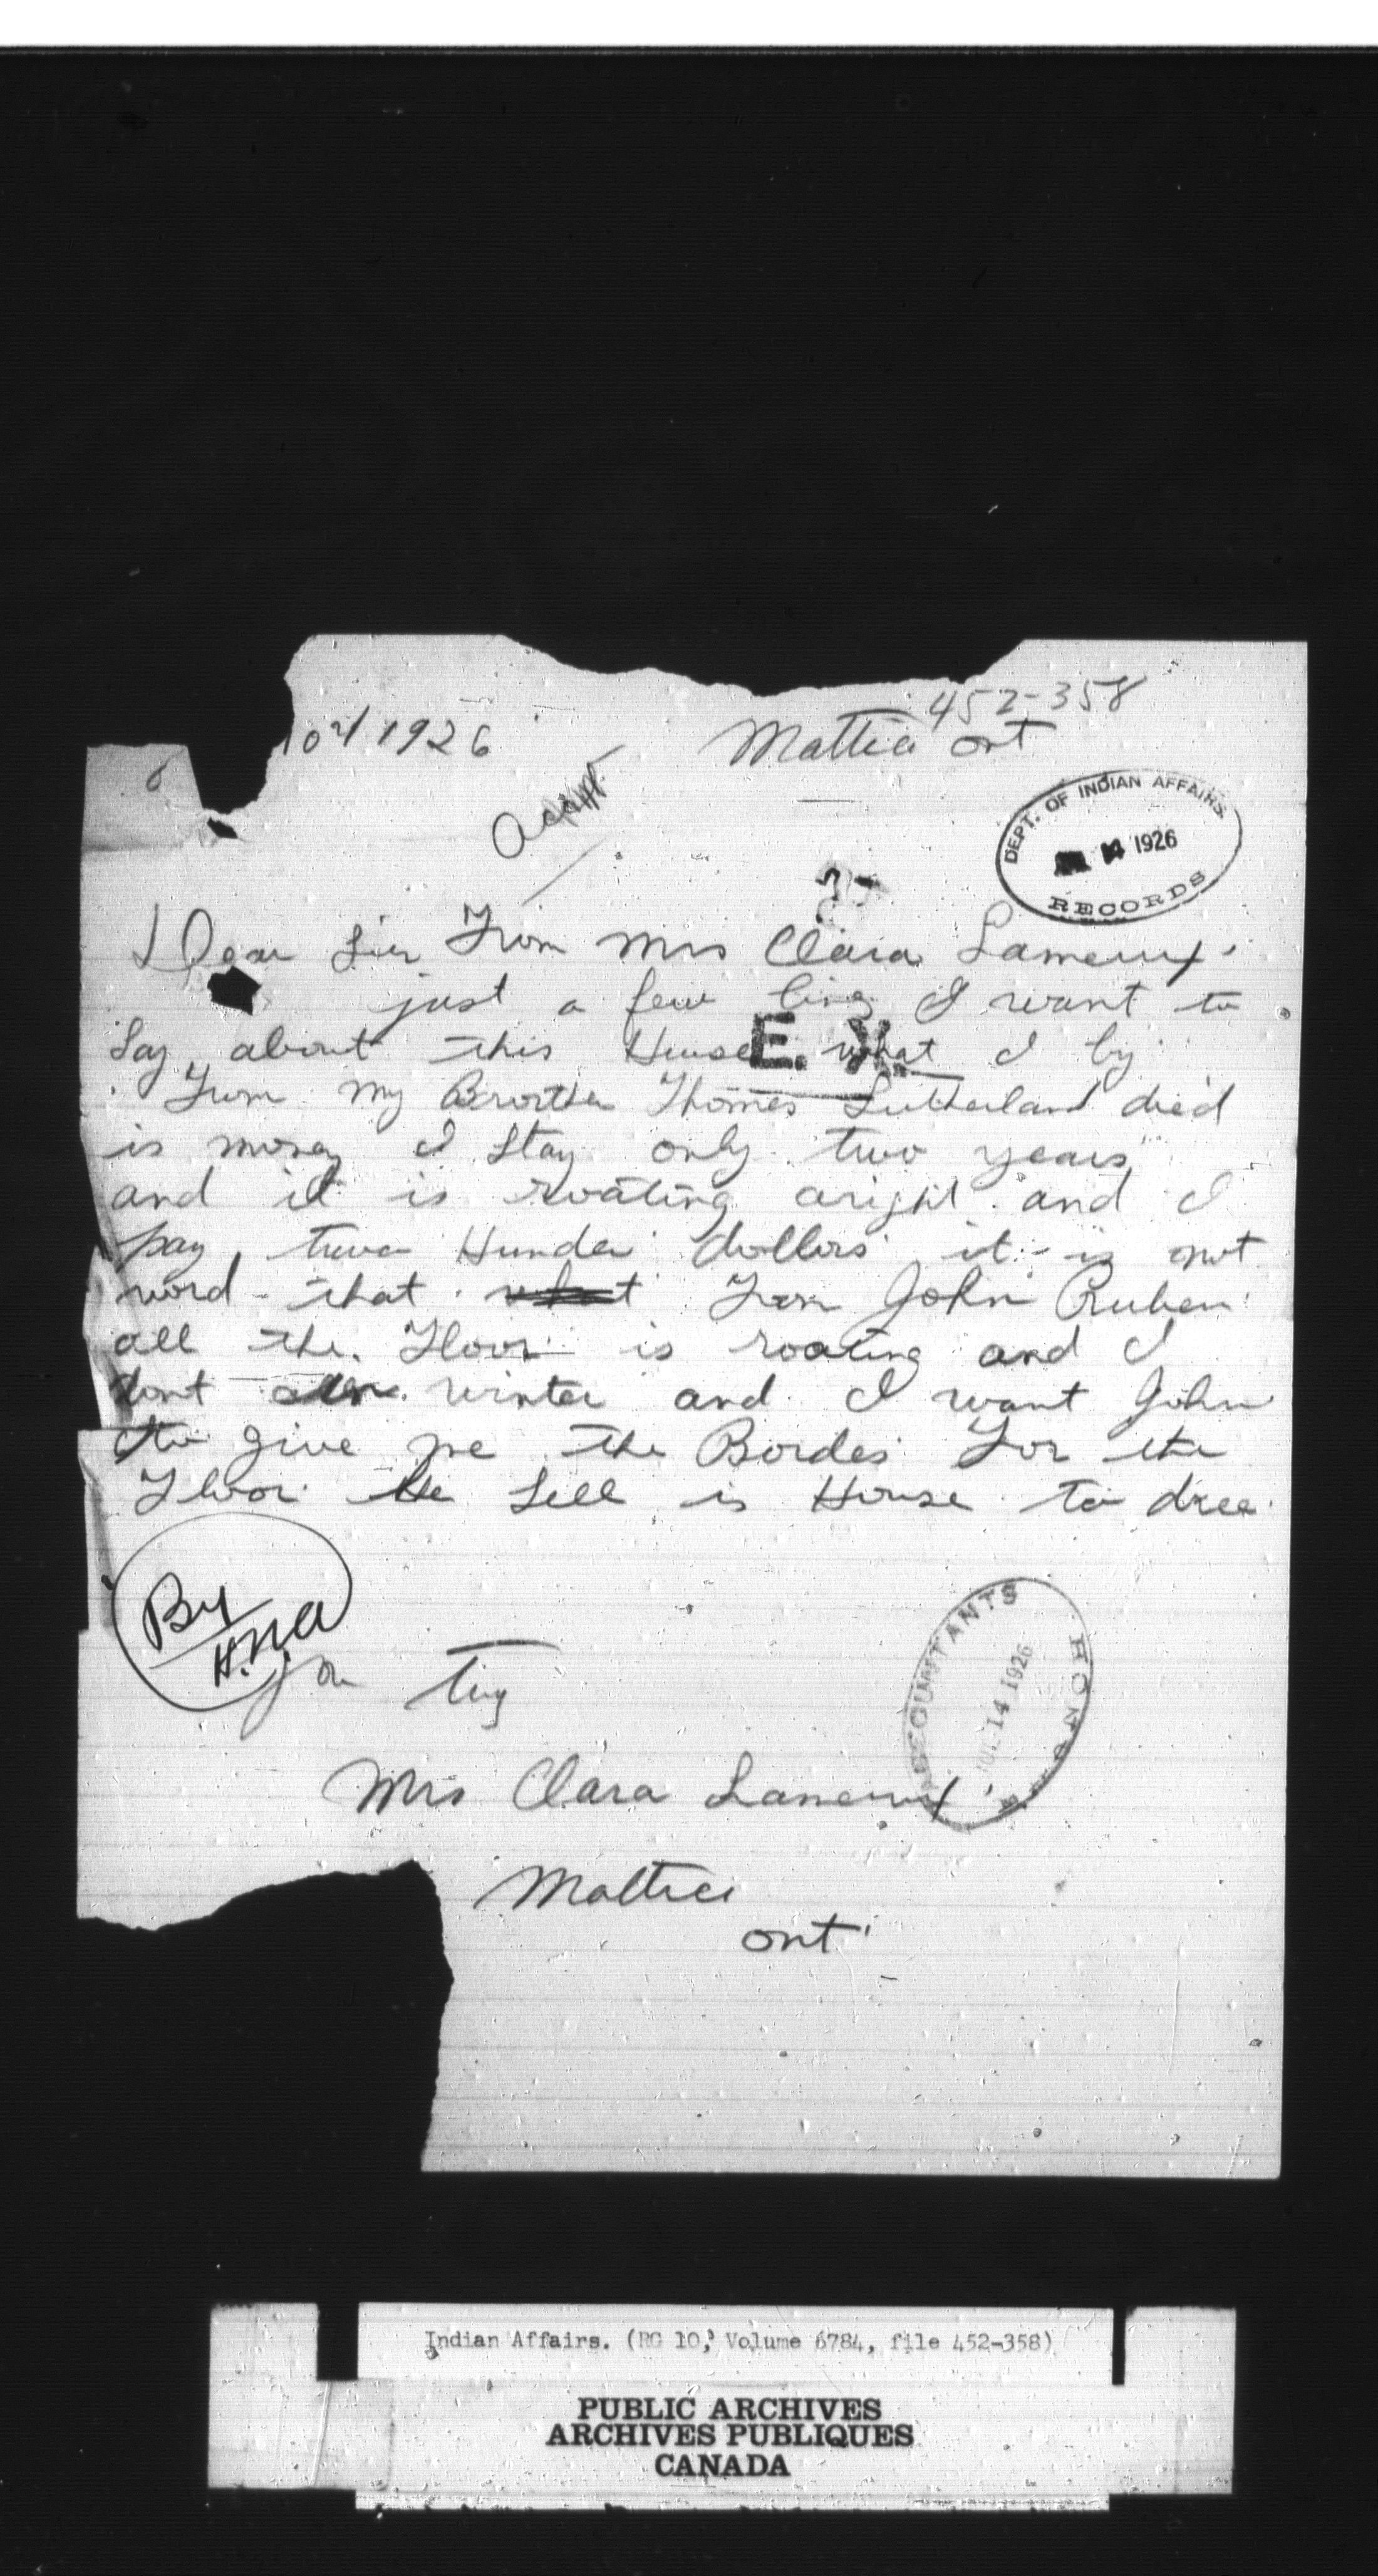 452-358
1926 Mattice ont
DEPT. OF INDIAN AFFAIRS
14 1926
RECORDS
Dear Sir From Mrs Clara Lameux
just a few line I want to
Say about this House what I by
E. Y.
From my Brorther Thomes Sutherland died
is money I stay only two years
and it is roating aright and I
pay two Hunder dollors it is not
word that what From John Ruben
all the Floor is roating and I
dont winter and I want John
to give me the Bordes For the
Floor He Sell is House to dree
By
H.
ACCOUNTANTS
14 1926
Mrs Clara Lameux
Mattice
ont
Indian Affairs. (RG 10, Volume 6784, file 452-358)
PUBLIC ARCHIVES
ARCHIVES PUBLIQUES
CANADA